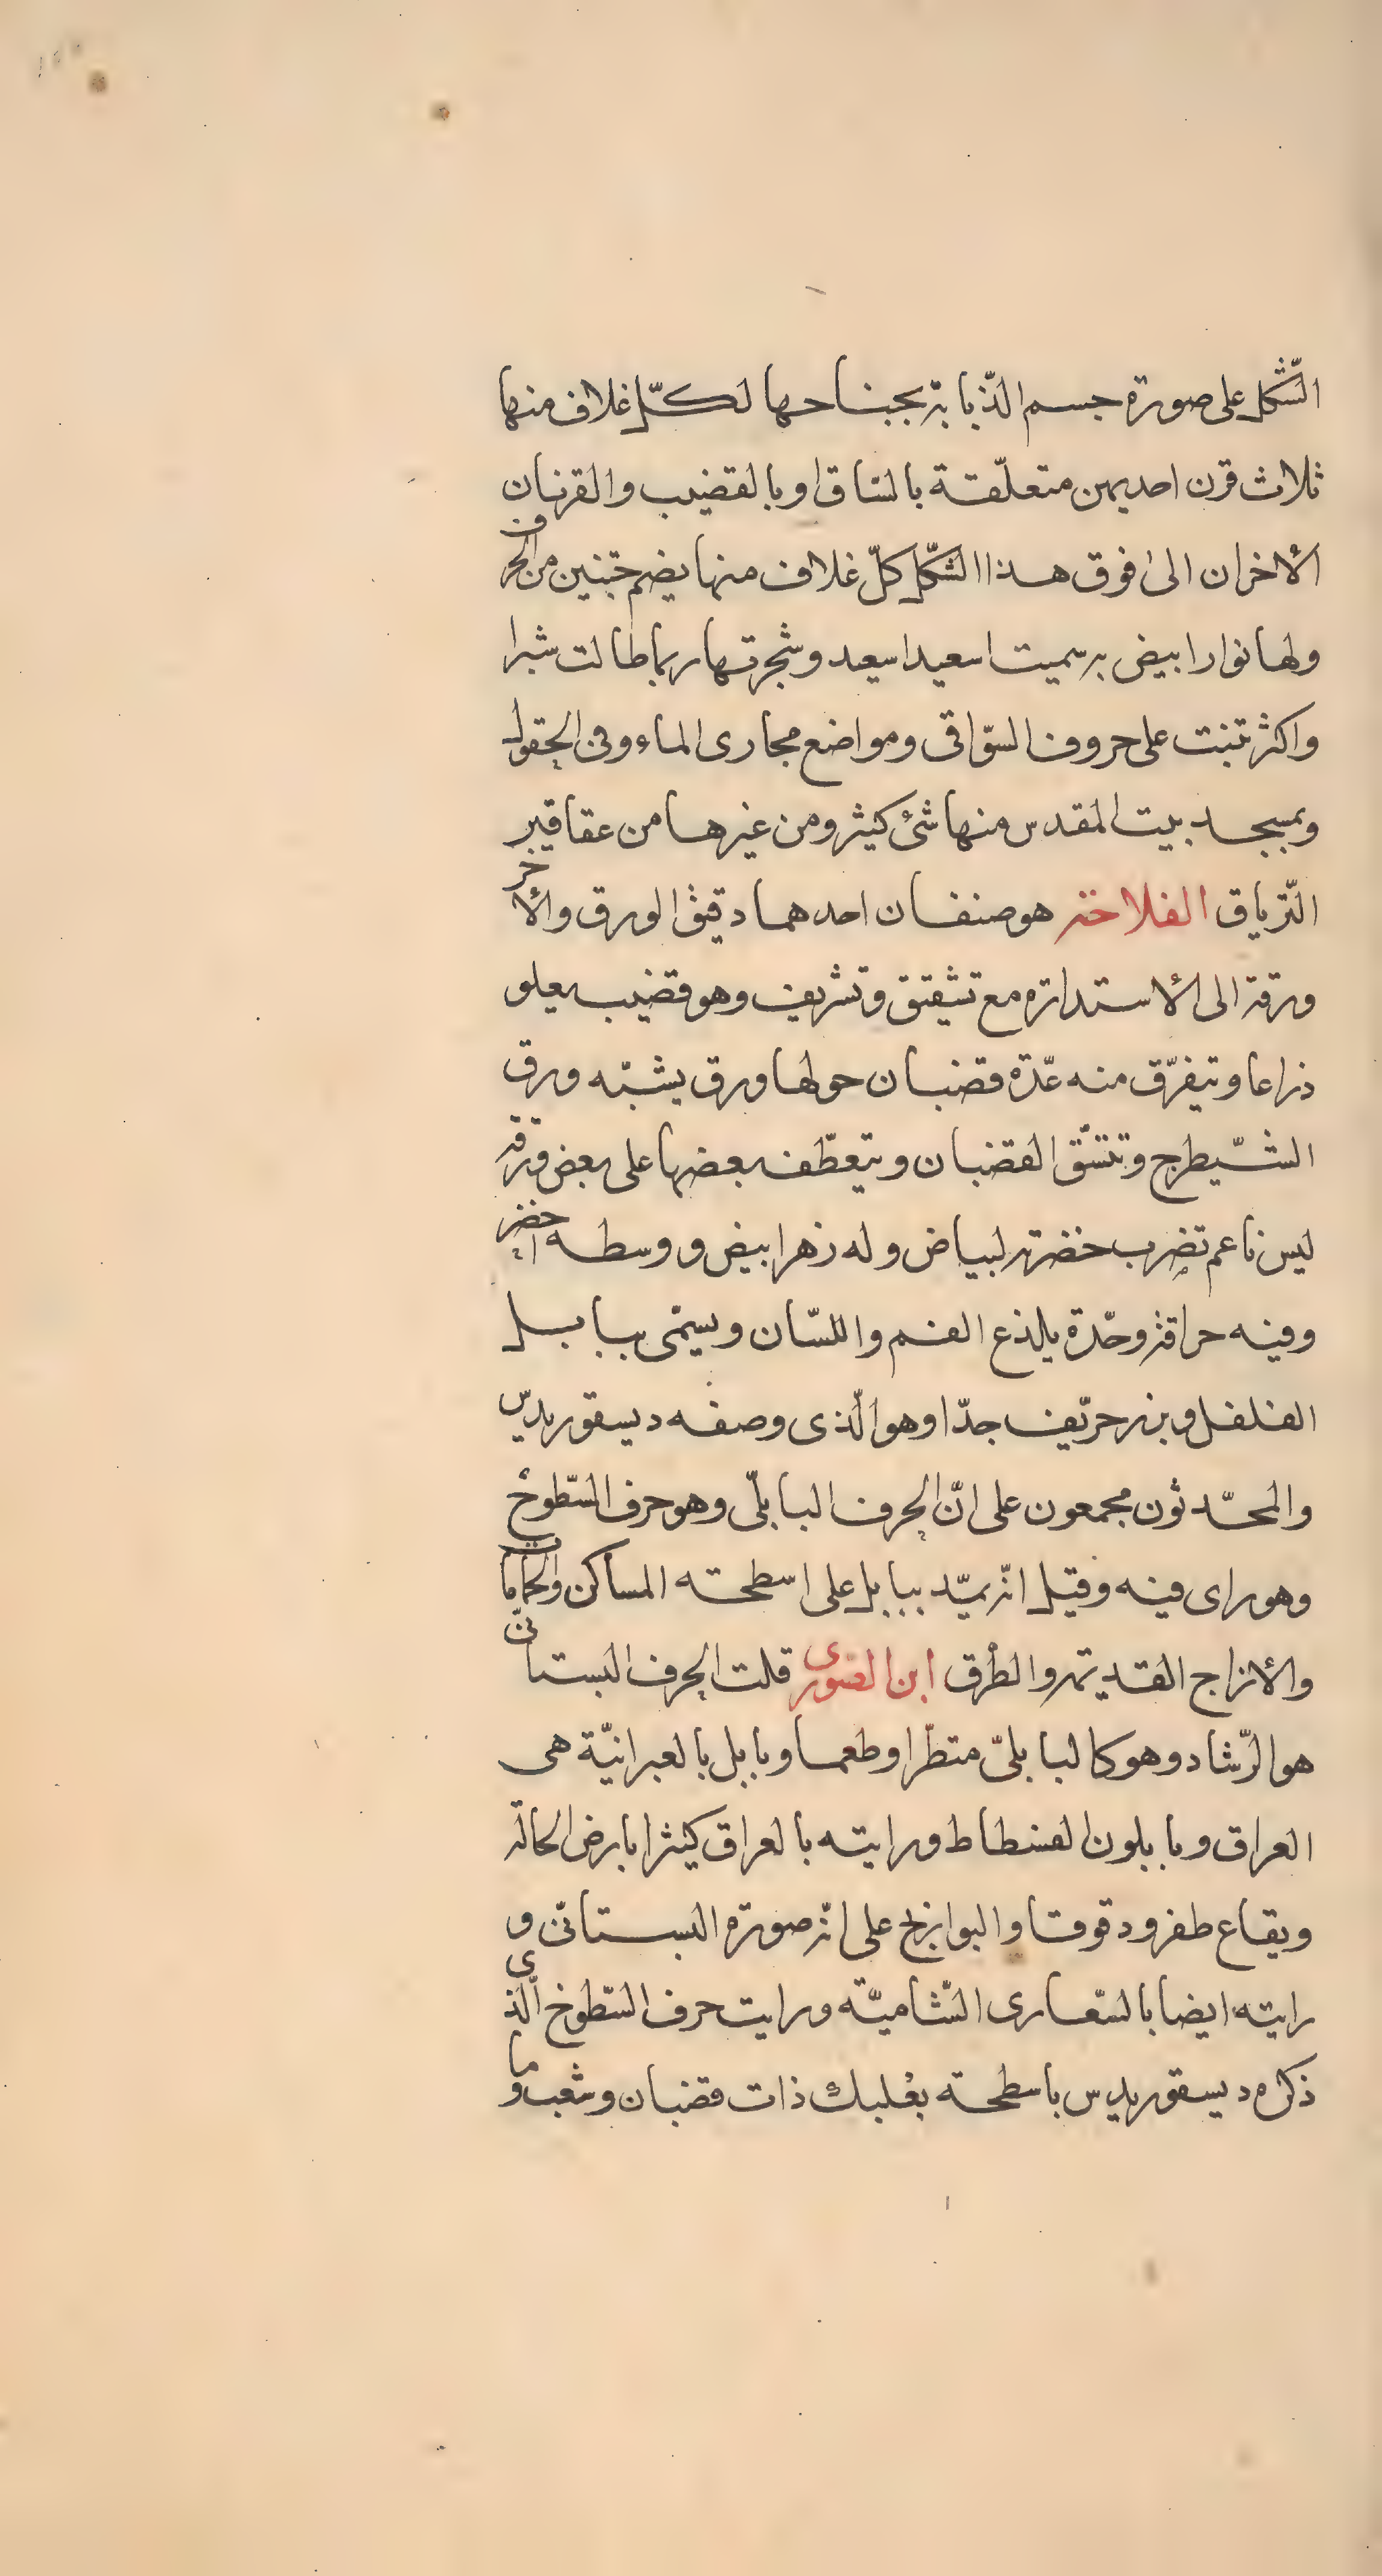 الشّكل على صورة جسم الذّبابة بجناحها لكلّ غلاف منها
ثلاث قرن احديهن متعلّقة بالسّاق او بالقضيب والقرنان
الأخران الى فوق هذا الشّكل كلّ غلاف منها يضم حبّتين من الحرف
ولها نوار ابيض به سميت اسعيدا سعيد وشجرتها ربما طالت شبرا
واكثر تنبت على حروف السّواقى ومواضع مجارى الماء وفى الحقول
وبمسجد بيت المقدس منها شئ كثير ومن غيرها من عقاقير
التّرياق الفلاحة هو صنفان احدهما دقيق الورق والأخر
ورقة الى الأستدارة مع تشقيق وتشريف وهو قضيب يعلو
ذراعا ويتفرّق منه عدّة قضبان حولها ورق يشبّه ورق
الشّيطرج وتتسّق القضبان ويتعطّف بعضها على بعض ورقه
ليس ناعم تضرب خضرته لبياض وله زهر ابيض ووسطه اخضر
وفيه حراقة وحدّة يلذع الفم واللسّان ويسمّى ببابل
الفلفل وبزر حرّيف جدّا وهو الّذى وصفه ديسقوريدس
والمحدّثون مجمعون على انّ الحرف البابلّى وهو حرف السّطوح
وهو راى فيه وقيل انّه يميّد ببابل على اسطحته المساكن والحمامات
والأزاج القديمة والطرق ابن الصّورى قلت الحرف البستانّى
هو الرّشاد وهو كالبابلىّ منظّرا وطعما وبابل بالعبرانيّة هى
العراق وبابلون الفسطاط ورايته بالعراق كثيرا بارض الحالة
وبقاع طفر ودقوقا والبوازيج على انّه صورة البستانّى و
رايته ايضا بالسّعارى الشّاميّة ورايت حرف السّطوخ الّذى
ذكره ديسقوريدس باسطحته بغلبك ذات قضبان وشعب وما